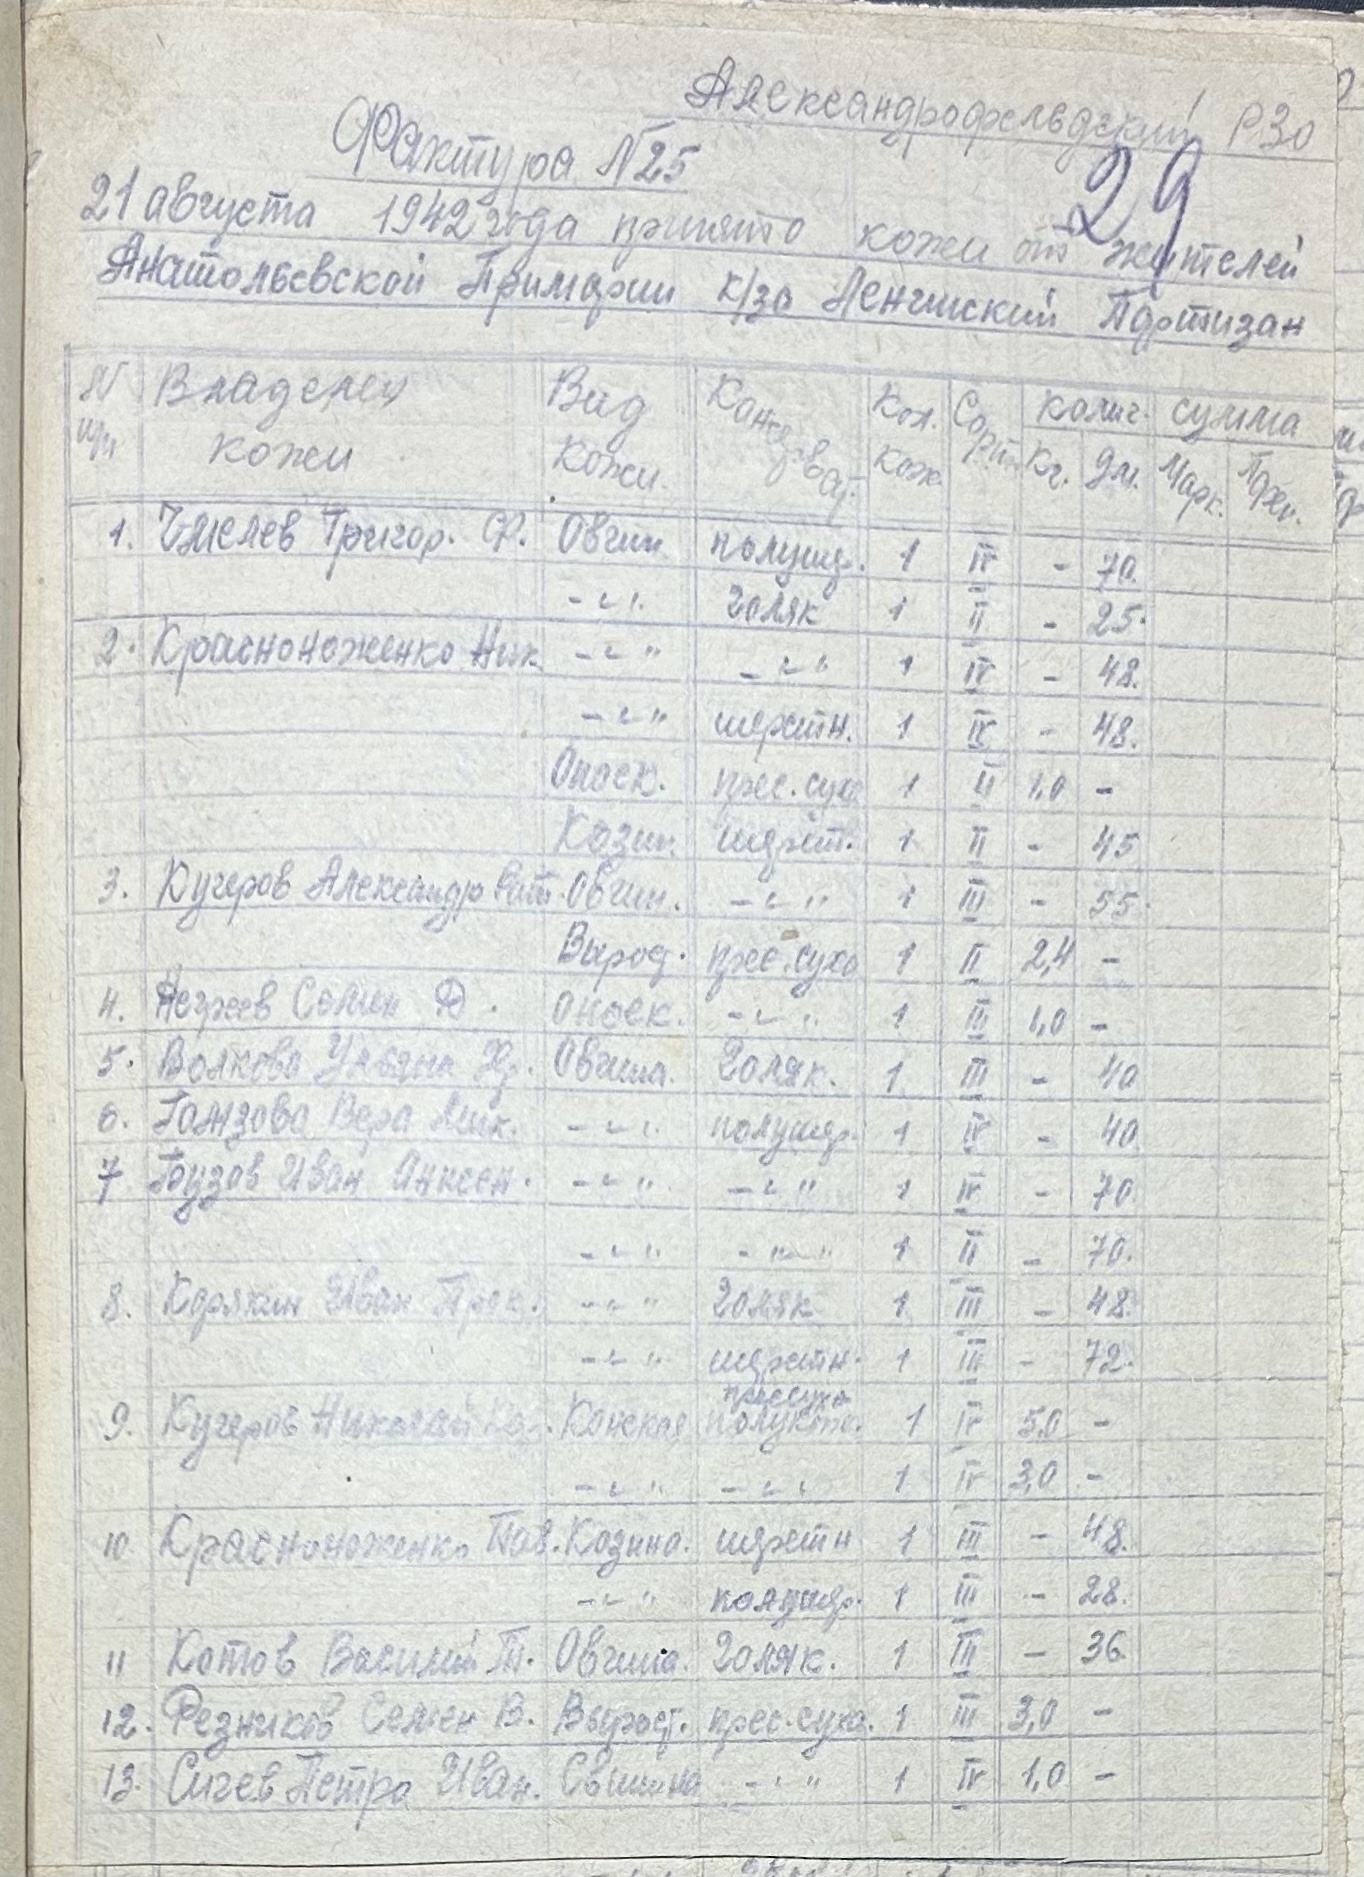 Александрофельдский РЗО
29
Фактура №25
21 августа 1942 года принято кожи от жителей
Анатольевской Примарии к/за Ленинский Партизан
№ п/п Владелец кожи Вид кожи. Консерват. Кол. кож. Сорт колич. Кг. Дм. сумма Марк. Пфен.
1. Чмелев Григор. Ф. Овчин. полушр. 1 IV - 70.
-"- голяк 1 II - 25.
2. Красноноженко Ник. -"- -"- 1 IV - 48.
-"- шерстн. 1 IV - 48.
Опоек. прес. сухо 1 II 1,0 -
Козин. шерст. 1 II - 45
3. Кучеров Александр Овчин. -"- 1 III - 55.
Вырос. прес. сухо 1 II 2,4 -
4. Семен Д. Опоек. -"- 1 III 1,0 -
5. Волкова Ульяна Овчина. Голяк. 1 III - 40
6. Вера -"- полушр. 1 IV - 40.
7 Иван -"- -"- 1 IV - 70
-"- -"- 1 II - 70.
8. Корякин Иван Прок. -"- Голяк 1 III - 48.
-"- шерстн. 1 III - 72.
пресухо
9. Кучеров Николай Конская 1 IV 5,0 -
-"- -"- 1 IV 3,0 -
10 Красноноженко Пав. Козина. шерстн 1 III - 48.
-"- полушр. 1 III - 28.
11 Котов Василий Т. Овчина. Голяк. 1 III - 36
12. Резников Семен В. Вырост. прес. сухо. 1 III 3,0 -
13. Сичев Петро Иван. Свинина -"- 1 IV 1,0 -